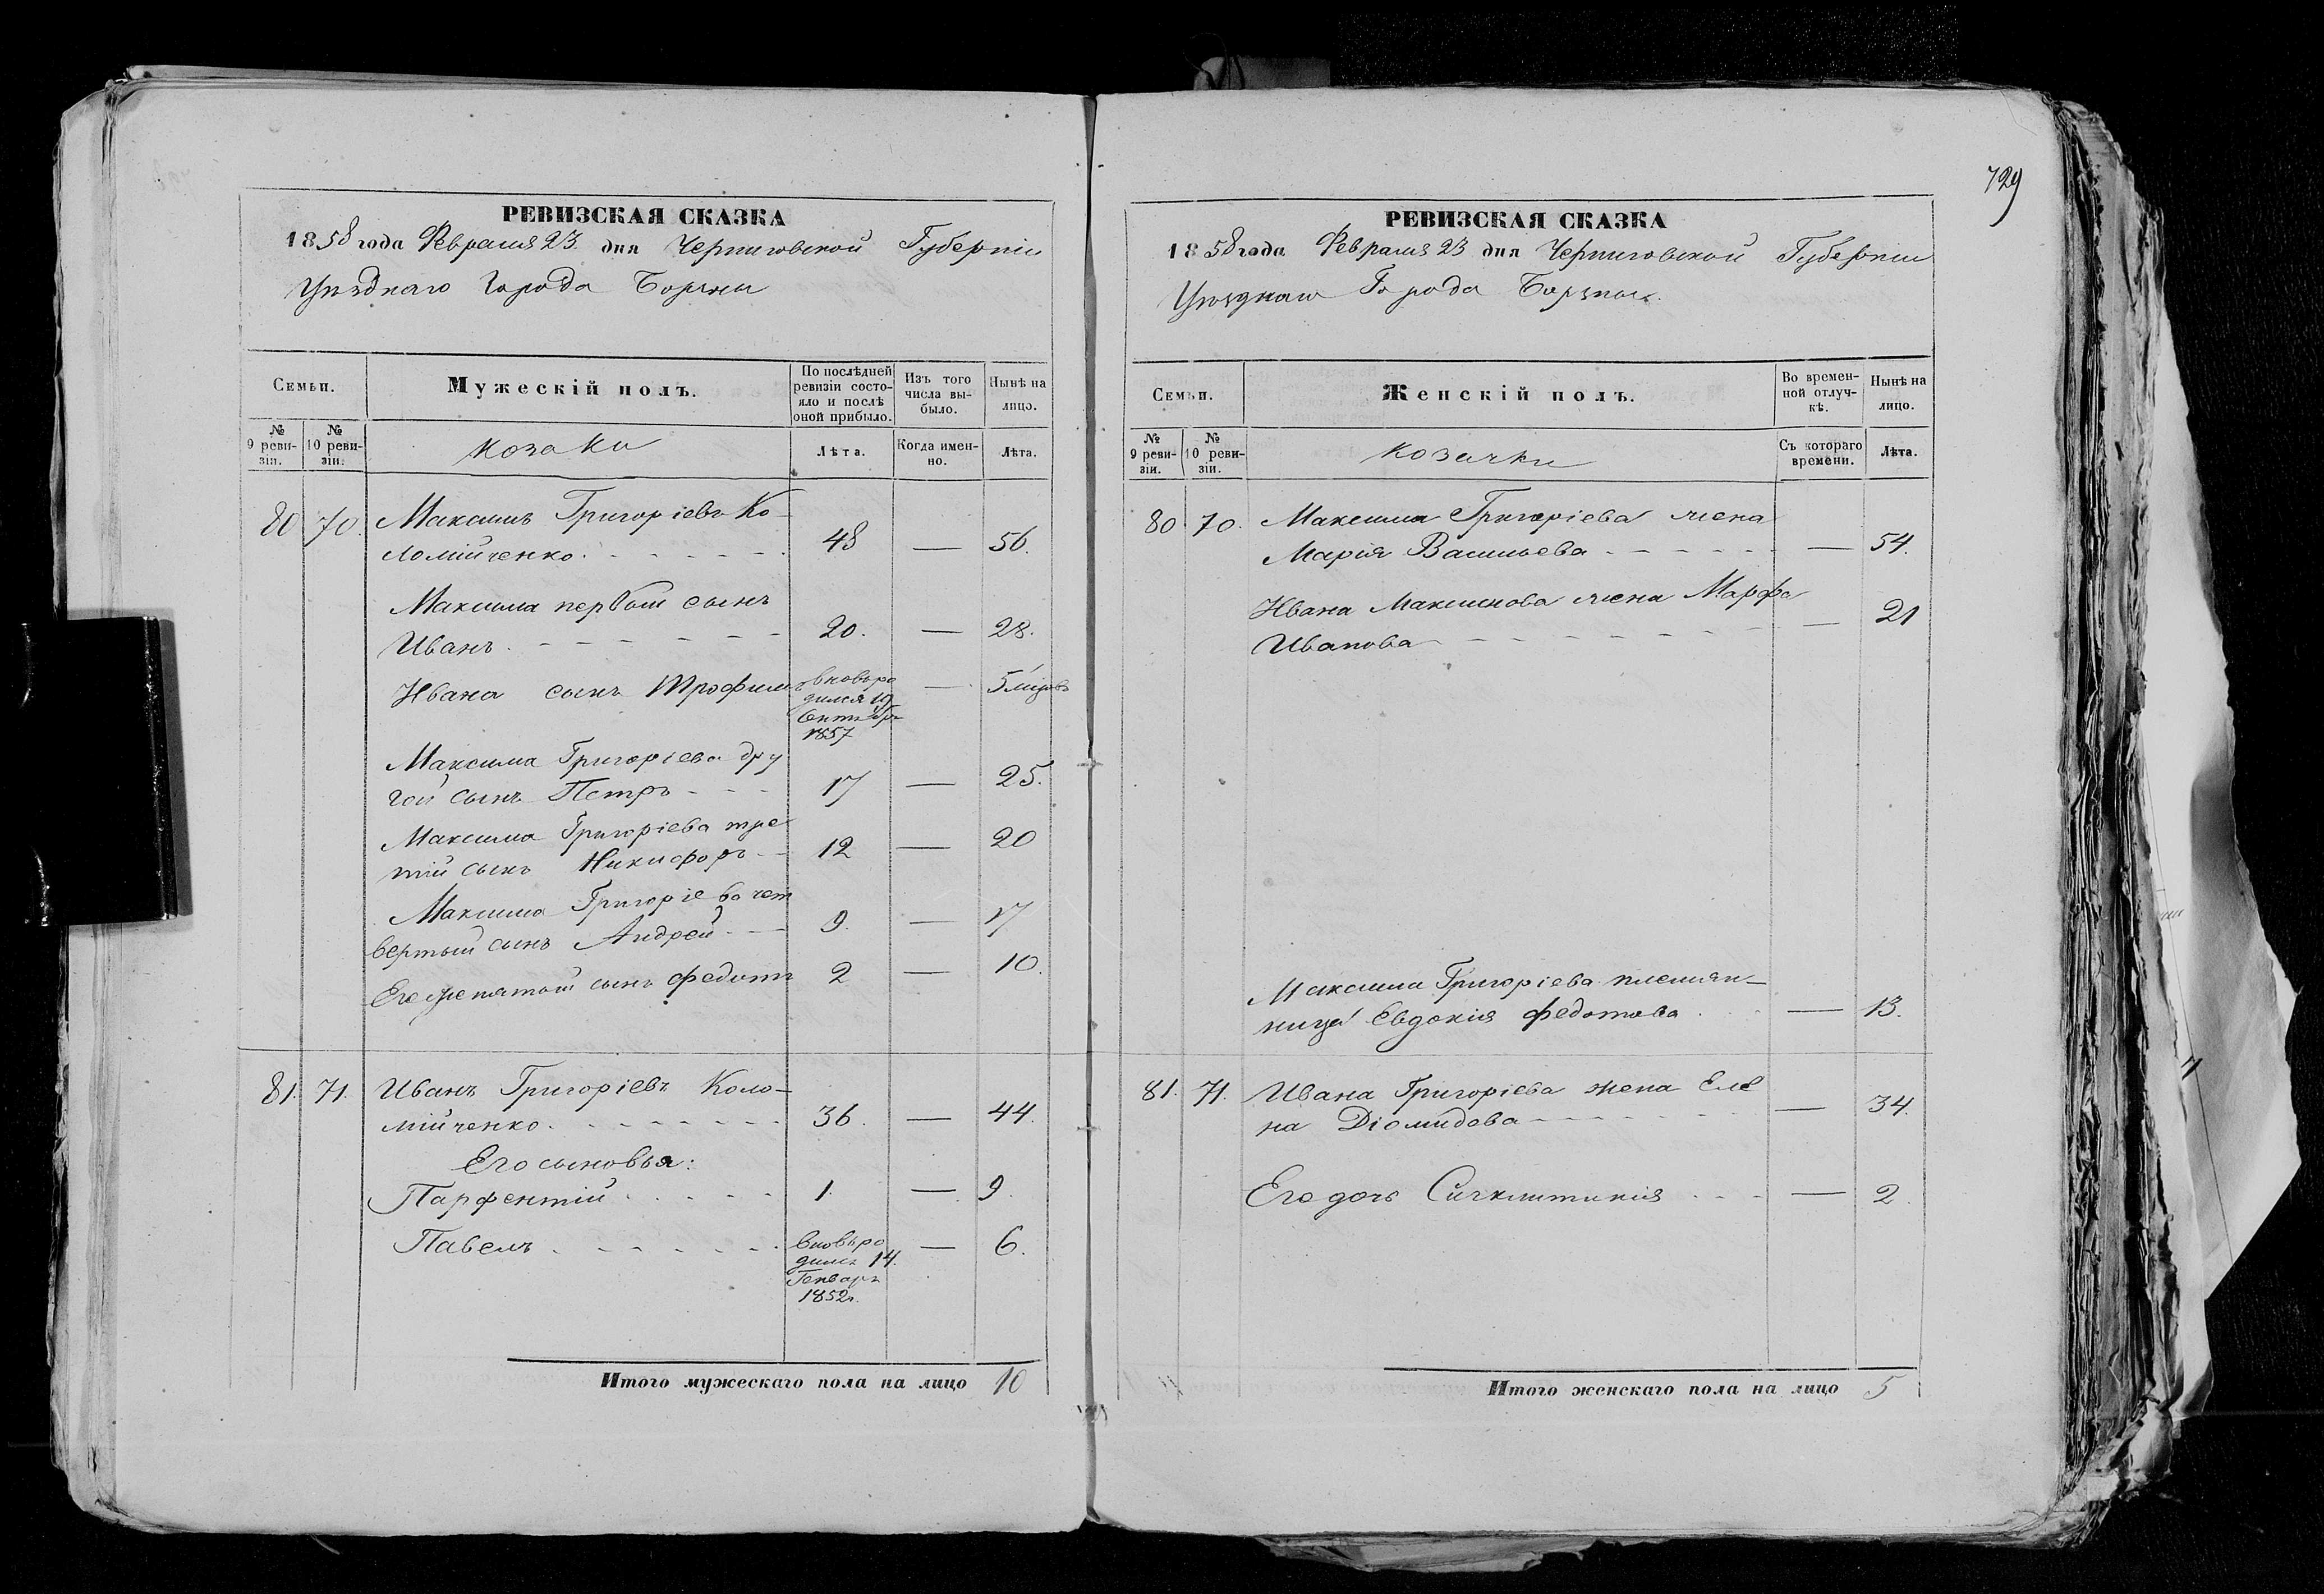 729
РЕВИЗСКАЯ СКАЗКА
1858 года Февраля 23 дня Черниговской Губерніи
Уѣзднаго Города Борзны
Семьи.
Мужескій полъ.
По послѣдней ревизіи состояло и послѣ оной прибыло.
Изъ того числа выбыло.
Нынѣ на лицо.
№ 9 ревизіи.
№ 10 ревизіи.
козаки
Лѣта.
Когда именно.
Лѣта.
80 70. Максимъ Григоріевъ Ко-
ломійченко. 48 — 56.
Максима первый сынъ
Иванъ. 20. — 28.
Ивана сынъ Трофимъ вновь ро
дился 19
Сентября
1857 — 5 мѣсцовъ
Максима Григоріева дру
гой сынъ Петръ 17 — 25.
Максима Григоріева тре
тій сынъ Никифоръ 12 — 20
Максима Григоріева чет
вертый сынъ Андрей 9. — 17
Его же пятый сынъ Федотъ 2 — 10.
81. 71. Иванъ Григоріевъ Коло-
мійченко. 36. — 44.
Его сыновья:
Парфентій 1. — 9.
Павелъ вновь ро
дился 14.
Генваря
1852г. — 6.
Итого мужескаго пола на лицо 10
РЕВИЗСКАЯ СКАЗКА
1858 года Февраля 23 дня Черниговской Губерніи
Уѣзднаго Города Борзны.
Семьи.
Женскій полъ.
Во временной отлучкѣ.
Нынѣ на лицо.
№ 9 ревизіи.
№ 10 ревизіи.
козачки
Съ котораго времени.
Лѣта.
80 70. Максима Григоріева жена
Марія Васильева — 54.
Ивана Максимова жена Марфа
Иванова — 21
Максима Григоріева племян-
ница Евдокія Федотова — 13.
81. 71. Ивана Григоріева жена Еле
на Діомидова — 34.
Его дочь — 2.
Итого женскаго пола на лицо 5